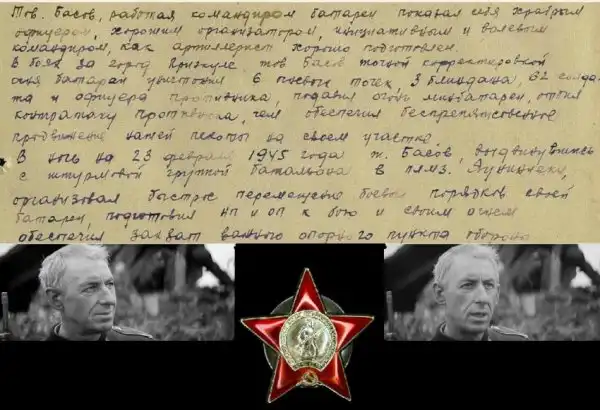 Тов. Басов, работая командиром батареи показал себя храбрым
офицером, хорошим организатором, инициативным и волевым
командиром, как артиллерист хорошо подготовлен.
В боях за город тов Басов точной корректировкой
огня батареи уничтожил 6 огневых точек, 3 блиндажа, 62 солда-
та и офицера противника, подавил огонь минбатареи, отбил
контратаку противника, чем обеспечил беспрепятственное
продвижение нашей пехоты на своем участке.
В ночь на 23 февраля 1945 года т. Басов, выдвинувшись
с штурмовой группой батальона в
организовал быстрое перемещение боевых порядков своей
батареи, подготовил НП и ОП к бою и своим огнем
обеспечил захват важного опорного пункта обороны